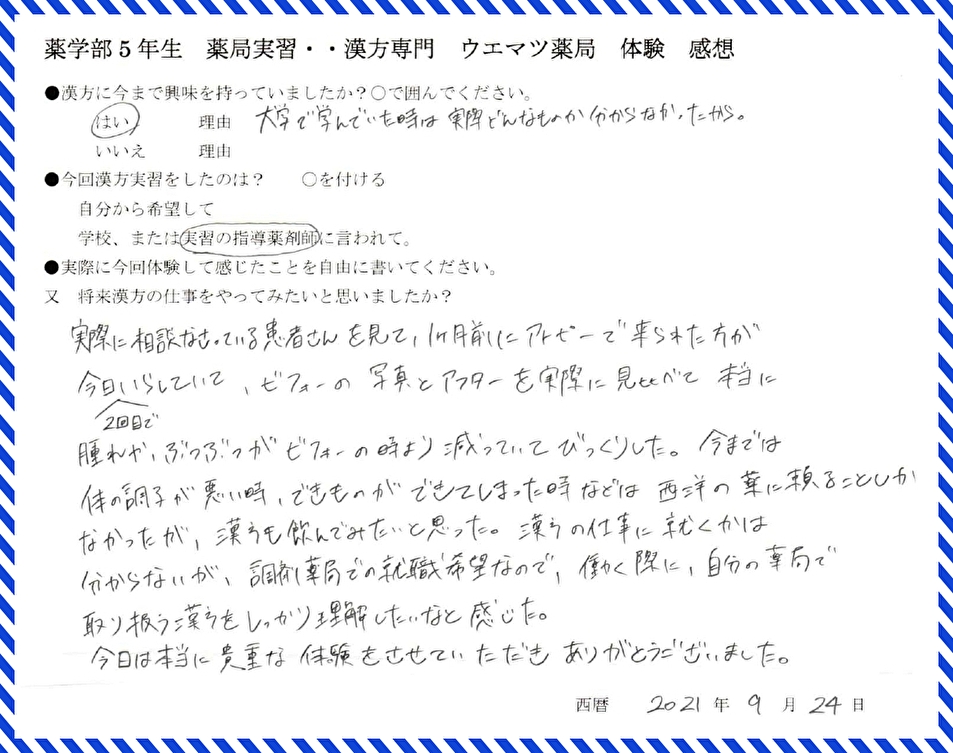 薬学部5年生　薬局実習・・漢方専門　ウエマツ薬局　体験　感想
●漢方に今まで興味を持っていましたか？○で囲んでください。
はい　理由　大学で学んでいた時は実際どんなものか分からなかったから。
いいえ　理由
●今回漢方実習をしたのは？　○を付ける
自分から希望して
学校、または実習の指導薬剤師に言われて。
●実際に今回体験して感じたことを自由に書いてください。
又　将来漢方の仕事をやってみたいと思いましたか？
実際に相談なさっている患者さんを見て、1ヶ月前にアトピーで来られた方が
今日いらしていて、ビフォーの写真とアフターを実際に見比べて本当に
2回目で
腫れや、ぶつぶつがビフォーの時より減っていてびっくりした。今までは
体の調子が悪い時、できものができてしまった時などは西洋の薬に頼ることしか
なかったが、漢方も飲んでみたいと思った。漢方の仕事に就くかは
分からないが、調剤薬局での就職希望なので、働く際に、自分の薬局で
取り扱う漢方をしっかり理解したいなと感じた。
今日は本当に貴重な体験をさせていただきありがとうございました。
西暦　2021年　9月　24日